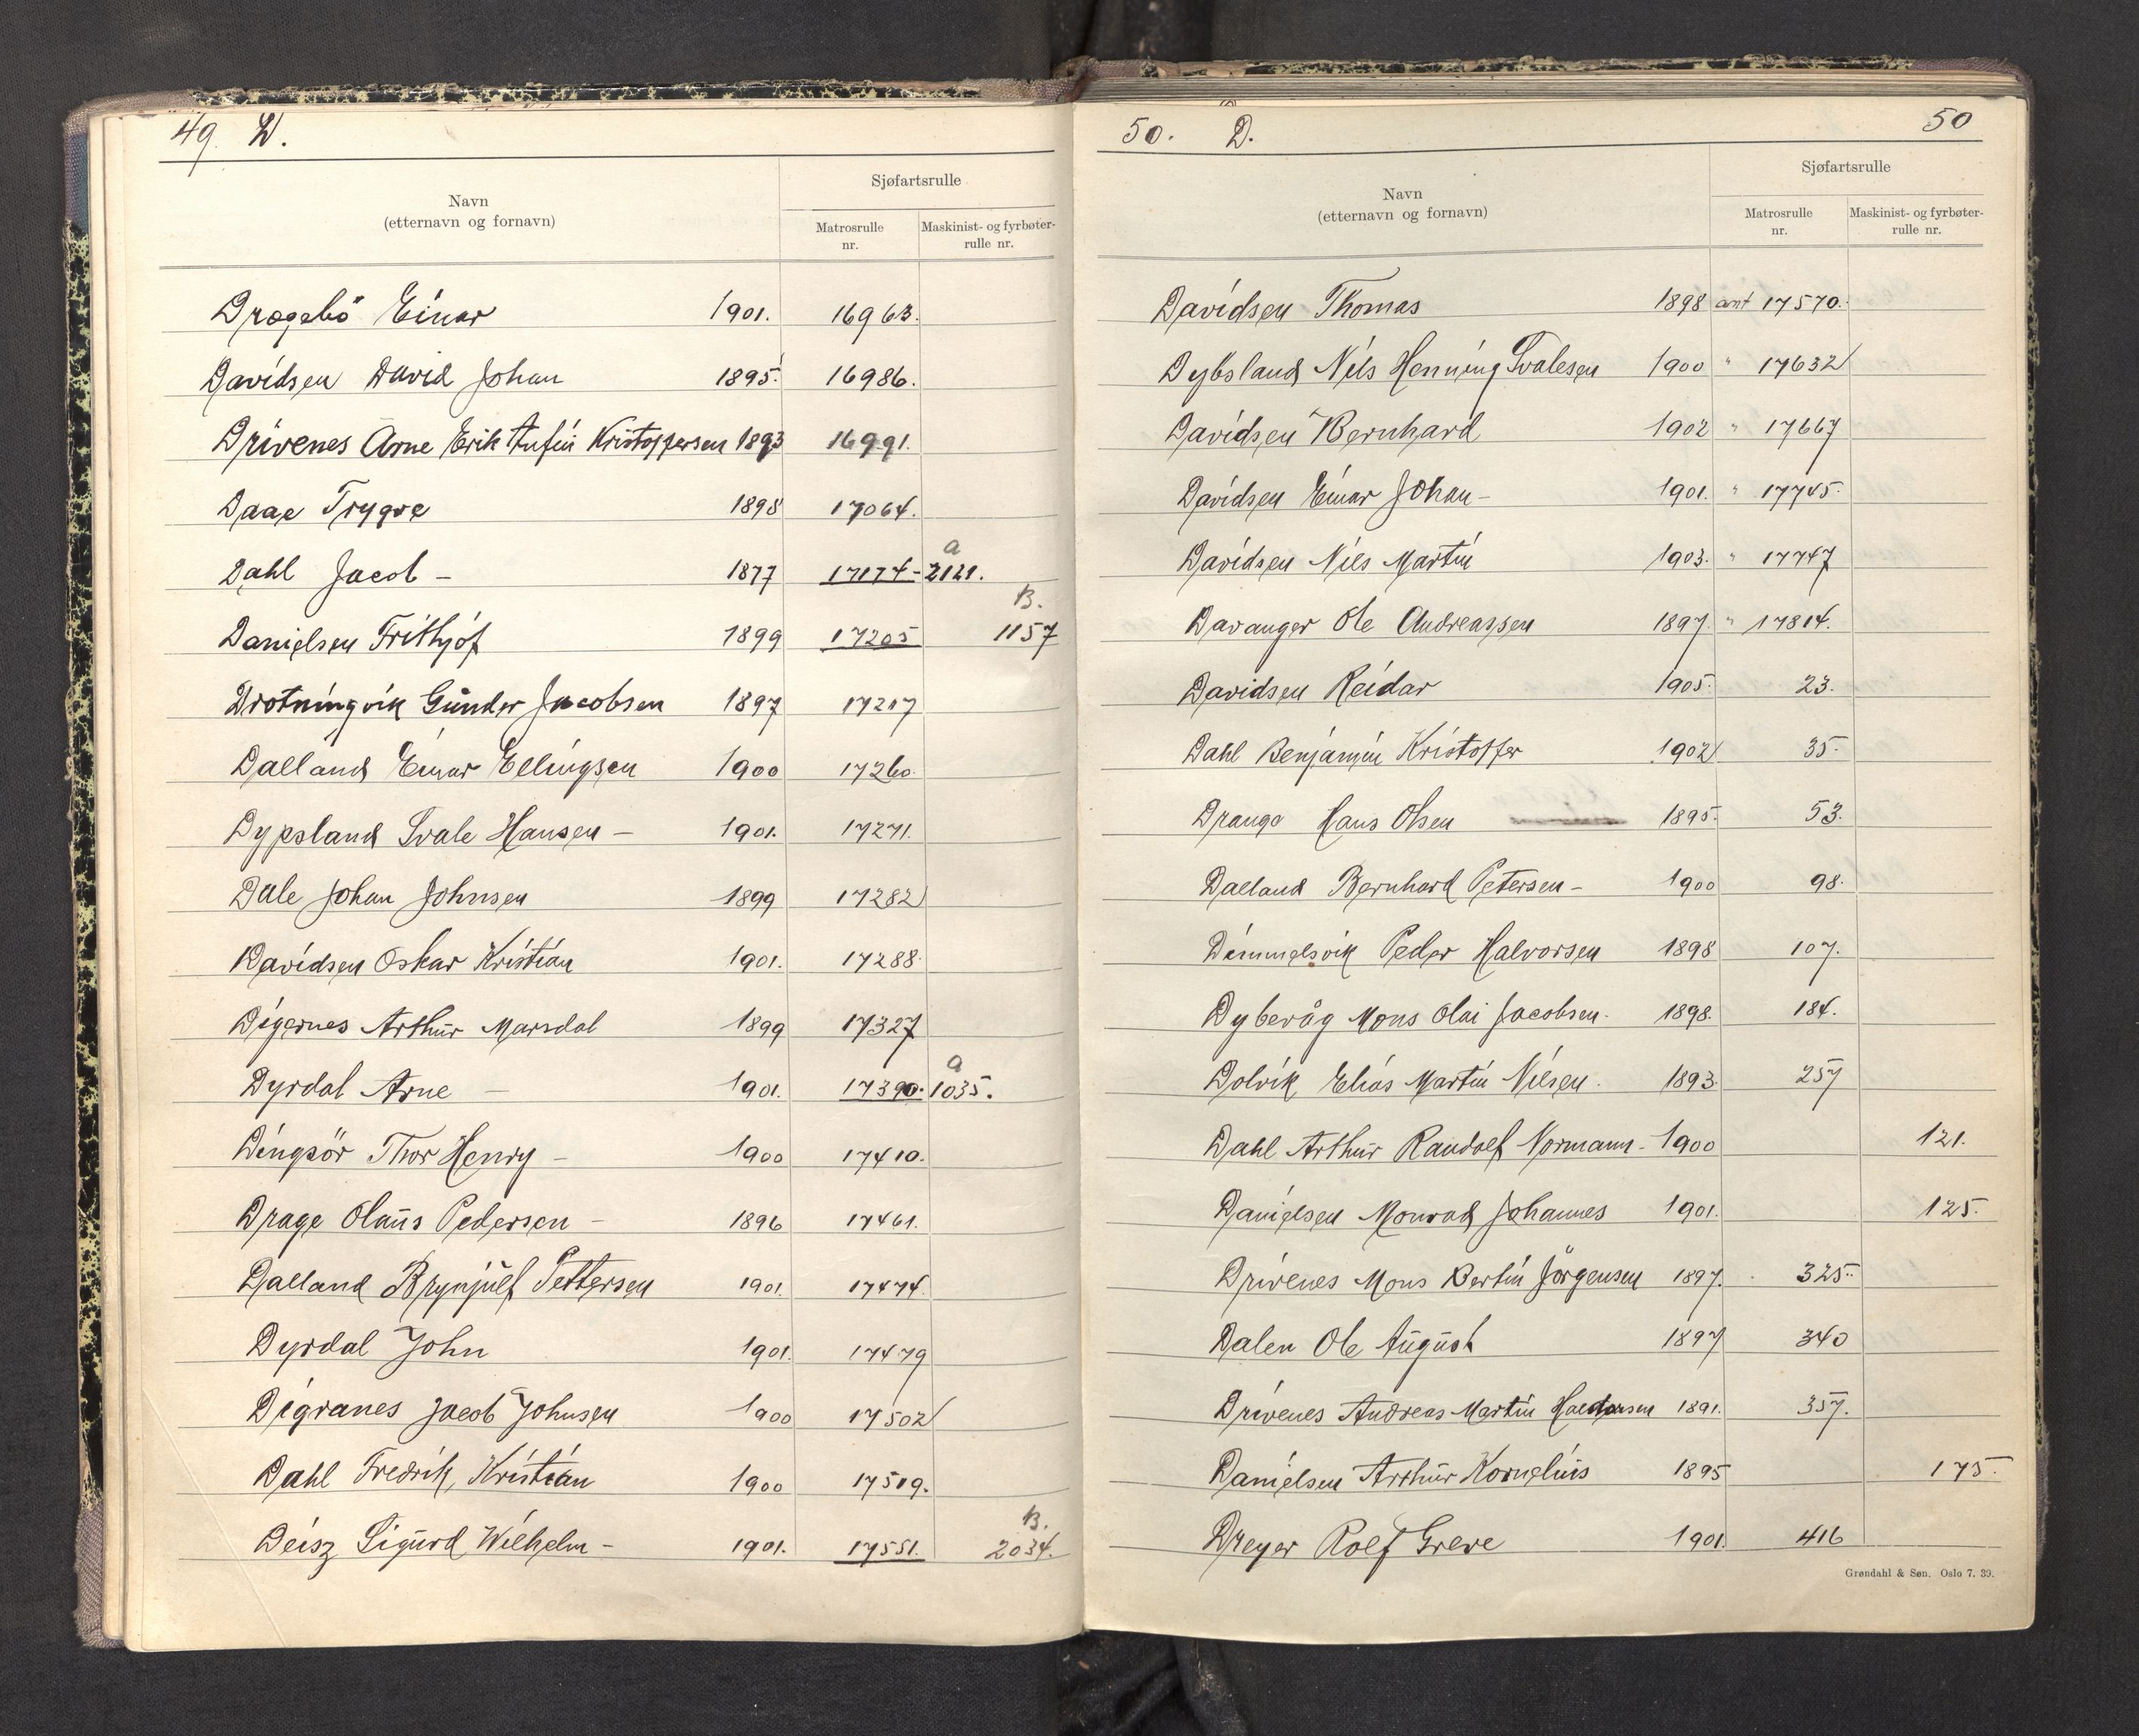 49. D.
Navn
(etternavn og fornavn)
Sjøfartsrulle
Matrosrulle nr.
Maskinist- og fyrbøter- rulle nr.
Dragebö Einar 1901. 16963.
Davidsen David Johan 1895. 16986.
Drivenes Arne Erik Anfin Kristoffersen 1893 16991.
Daae Trygve 1898 17064.
Dahl Jacob – 1877 17174 - a 2121.
Danielsen Frithjof 1899 17205 B. 1157
Drotningvik Gunder Jacobsen 1897 17217
Dalland Einar Ellingsen 1900 17260.
Dypsland Svale Hansen – 1901. 17271.
Dale Johan Johnsen 1899 17282
Davidsen Oskar Kristian 1901. 17288
Digernes Arthur Marsdal 1899 17327
Dyrdal Arne – 1901. 17390. a 1035.
Dingsör Thor Henry – 1900 17410.
Drage Olaus Pedersen – 1896 17461.
Dalland Brynjulf Pettersen 1901. 17474.
Dyrdal John 1901. 17479
Digranes Jacob Johnsen 1900 17502
Dahl Fredrik Kristian 1900 17519.
Deisz Sigurd Wilhelm – 1901. 17551. B. 2034.
50. D. 50
Navn
(etternavn og fornavn)
Sjøfartsrulle
Matrosrulle nr.
Maskinist- og fyrbøter- rulle nr.
Davidsen Thomas 1898 ant 17570.
Dybsland Nils Henning Svalesen 1900 " 17632
Davidsen Bernhard 1902 " 17667
Davidsen Einar Johan – 1901. " 17745.
Davidsen Nils Martin 1903. " 17747
Davanger Ole Andreassen 1897. " 17814.
Davidsen Reidar 1905. 23.
Dahl Benjamin Kristoffer 1902 35.
Drange Hans Olsen 1895. 53.
Dalland Bernhard Petersen – 1900 98.
Dimmelsvik Peder Halvorsen 1898 107.
Dybevåg Mons Olai Jacobsen. 1898. 184.
Dolvik Elias Martin Nilsen. 1893. 257
Dahl Arthur Randolf Normann – 1900 121.
Danielsen Monrad Johannes 1901. 125.
Drivenes Mons Bertin Jörgensen 1897. 325.
Dalen Ole August 1897 340
Drivenes Andreas Martin Haldorsen 1891. 357.
Danielsen Arthur Kornelius 1895 175.
Dreyer Rolf Greve 1901. 416
Grøndahl & Søn. Oslo 7. 39.